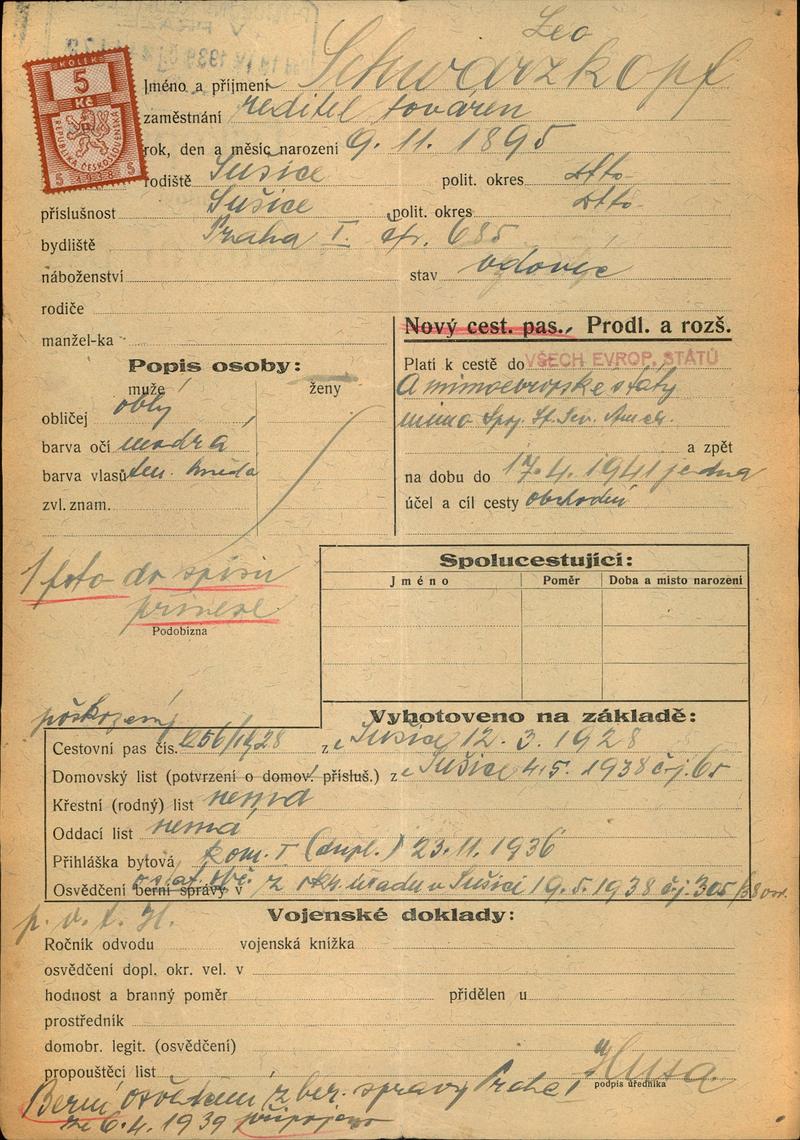 KOLEK
5
Kč
REPUBLIKA ČESKOSLOVENSKÁ
5 1938 5
Leo
Jméno a příjmení Schwarzkopf
zaměstnání ředitel továren
rok, den a měsíc narození 9. 11. 1895
rodiště Sušice polit. okres dtto
příslušnost Sušice polit. okres dtto
bydliště Praha I. čp. 685
náboženství stav vdovec
rodiče
manžel-ka
Nový cest. pas., Prodl. a rozš.
Platí k cestě do VŠECH EVROP. STÁTŮ
a mimoevropské státy
mimo Spoj. St. Sev. Amer.
a zpět
na dobu do 17. 4. 1941 jedna
účel a cíl cesty obchodní
Popis osoby:
muže ženy
obličej oblý
barva očí modrá
barva vlasů tem. hnědá
zvl. znam.
1 foto do spisu
přinese
Podobizna
Spolucestující:
Jméno Poměr Doba a místo narození
poškozený
Vyhotoveno na základě:
Cestovní pas čís. 256/1928 z Sušice 12. 3. 1928
Domovský list (potvrzení o domov. přísluš.) z Sušice 4. 5. 1938 čj. 65
Křestní (rodný) list nemá
Oddací list nemá
Přihláška bytová kom. I (dupl.) 23. 11. 1936
Osvědčení berní správy v o stát. obč. z okr. úřadu v Sušici 19. 5. 1938 čj. 305/38
p. v. t. H.
Vojenské doklady:
Ročník odvodu vojenská knížka
osvědčení dopl. okr. vel. v
hodnost a branný poměr přidělen u
prostředník
domobr. legit. (osvědčení)
propouštěcí list
Husa
podpis úředníka
Berní osvědčení z ber. správy Praha I
ze 6. 4. 1939 připojeno